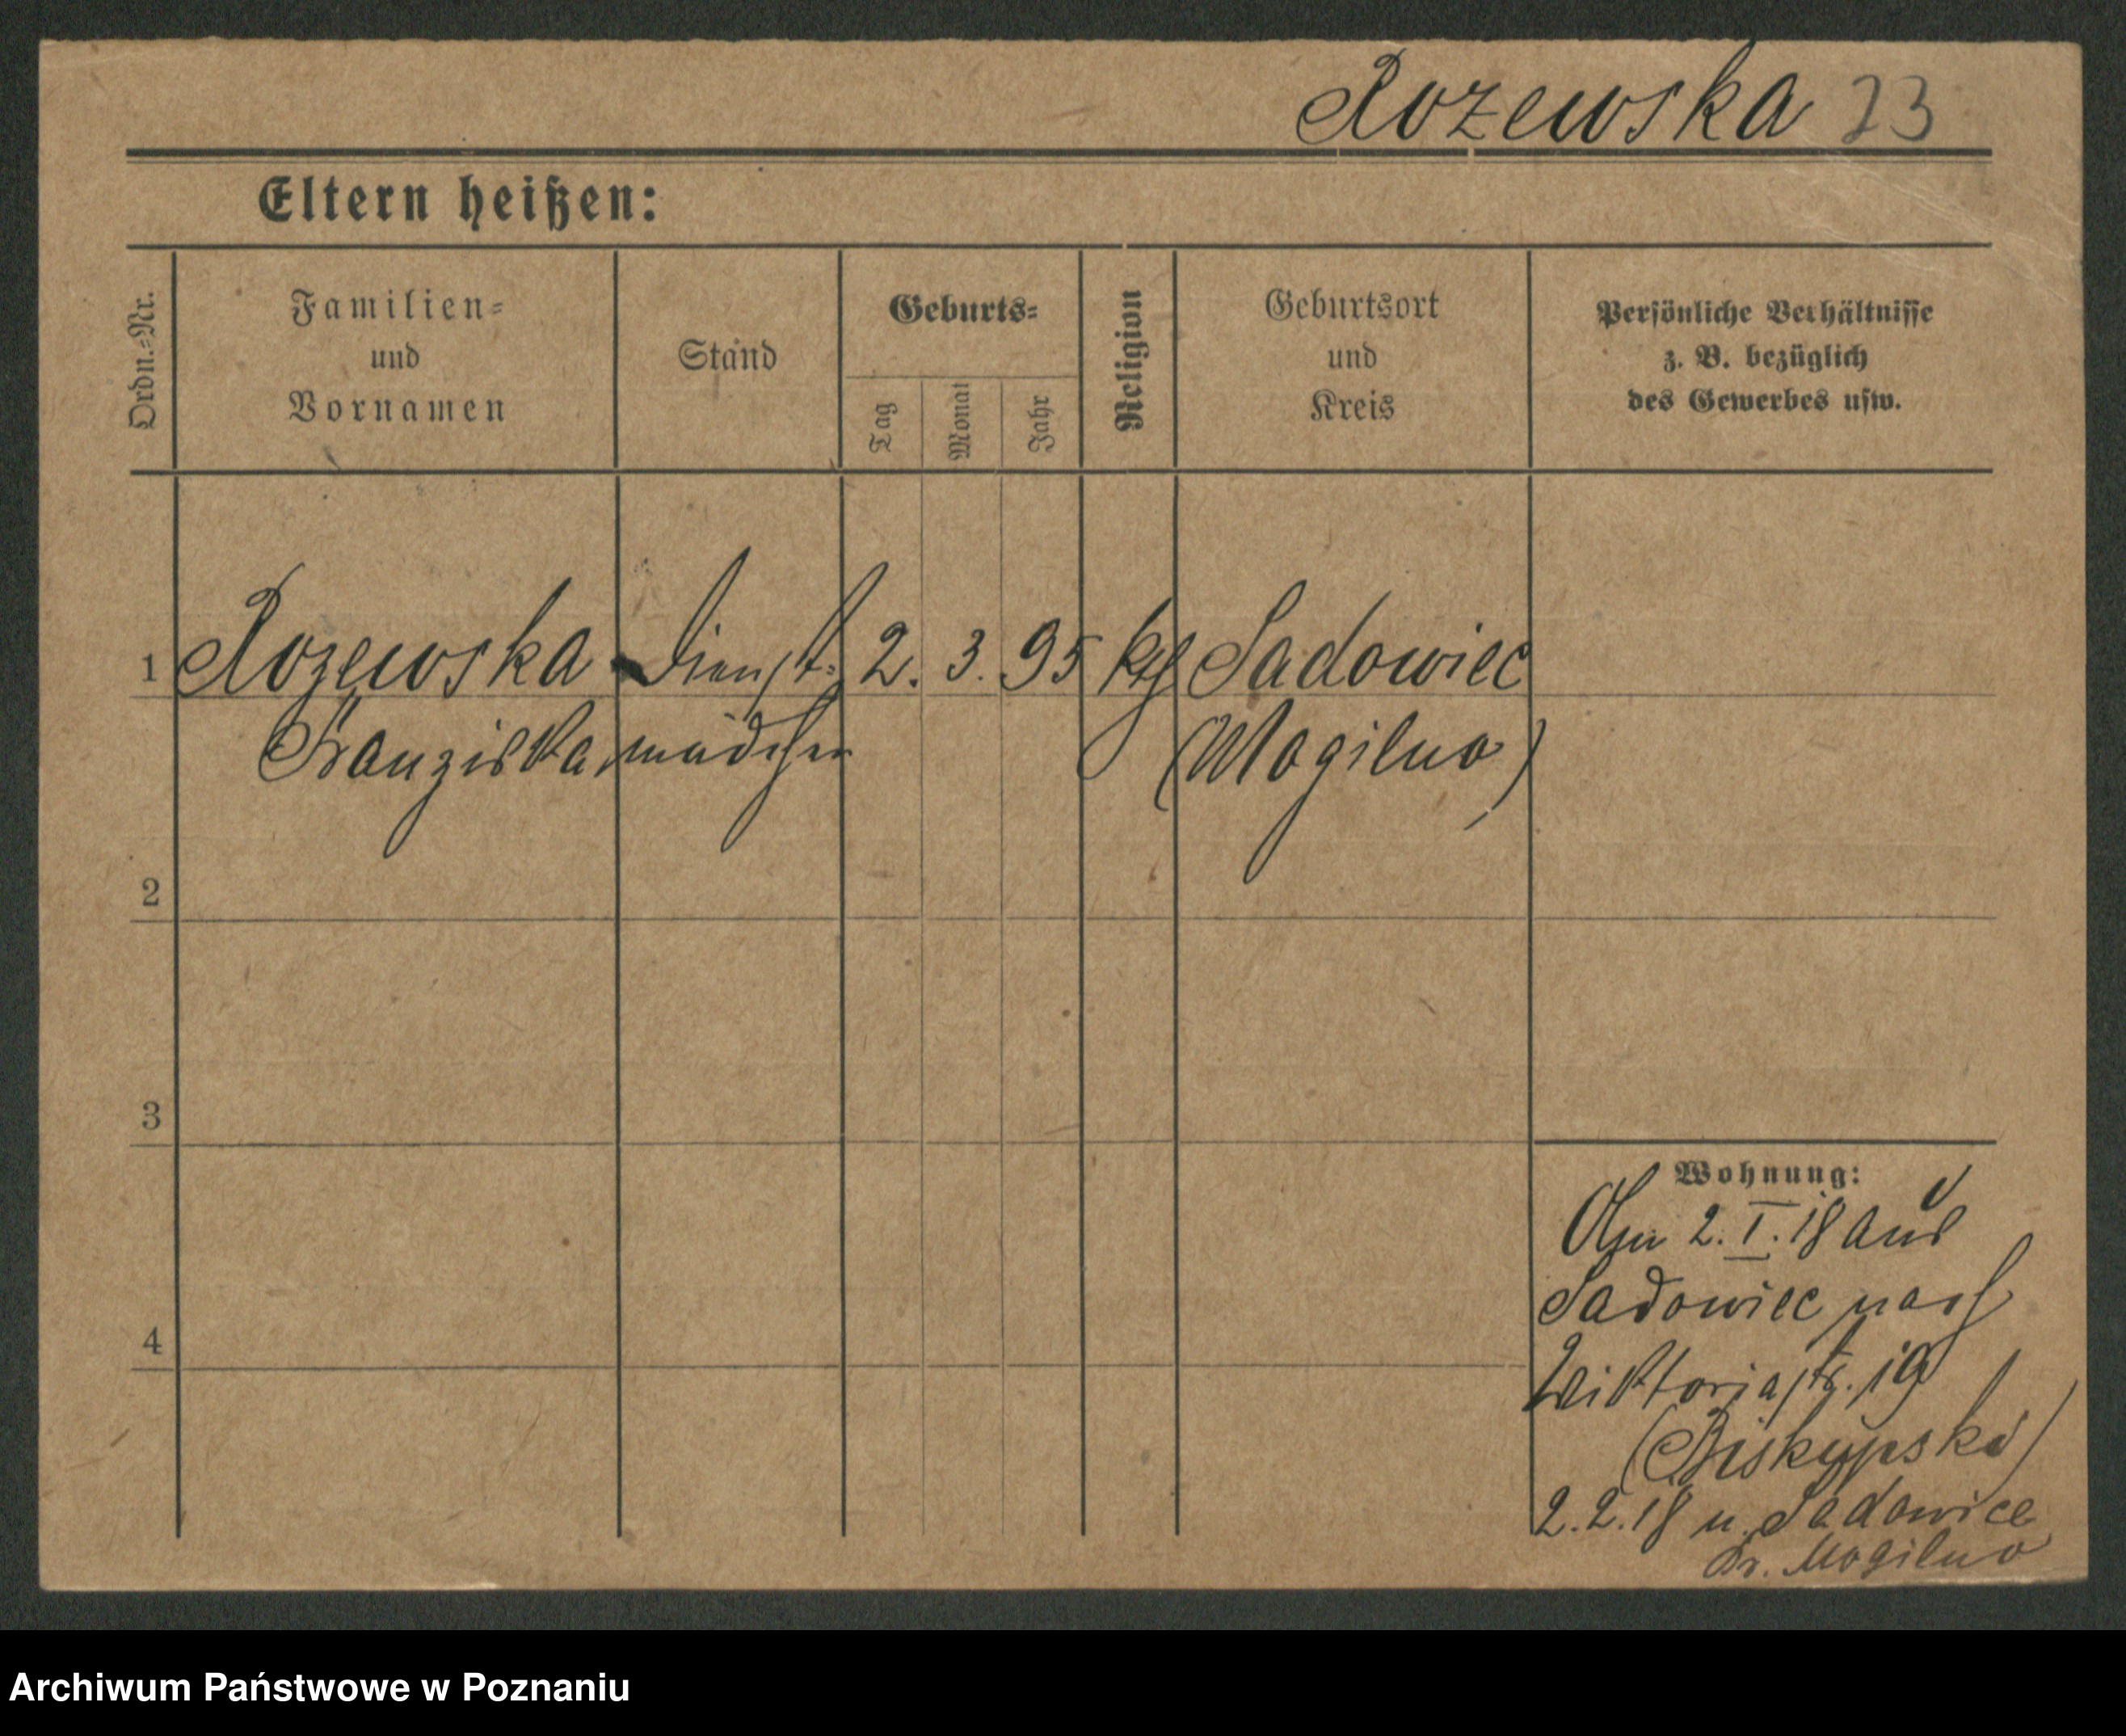 Rozewska 23
Eltern heißen:
Ordn.-Nr.
Familien-
und
Vornamen
Stand
Geburts-
Tag
Monat
Jahr
Religion
Geburtsort
und
Kreis
Persönliche Verhältnisse
z. B. bezüglich
des Gewerbes usw.
1 Rozewska Dienst- 2. 3. 95 kg Sadowiec
Franziska mädchen (Mogilno)
2
3
4
Wohnung:
2. I. 18 aus
Sadowiec nach
Viktoriastr. 19
(Biskupski)
2.2.18 n. Sadowice
Kr. Mogilno
Archiwum Państwowe w Poznaniu